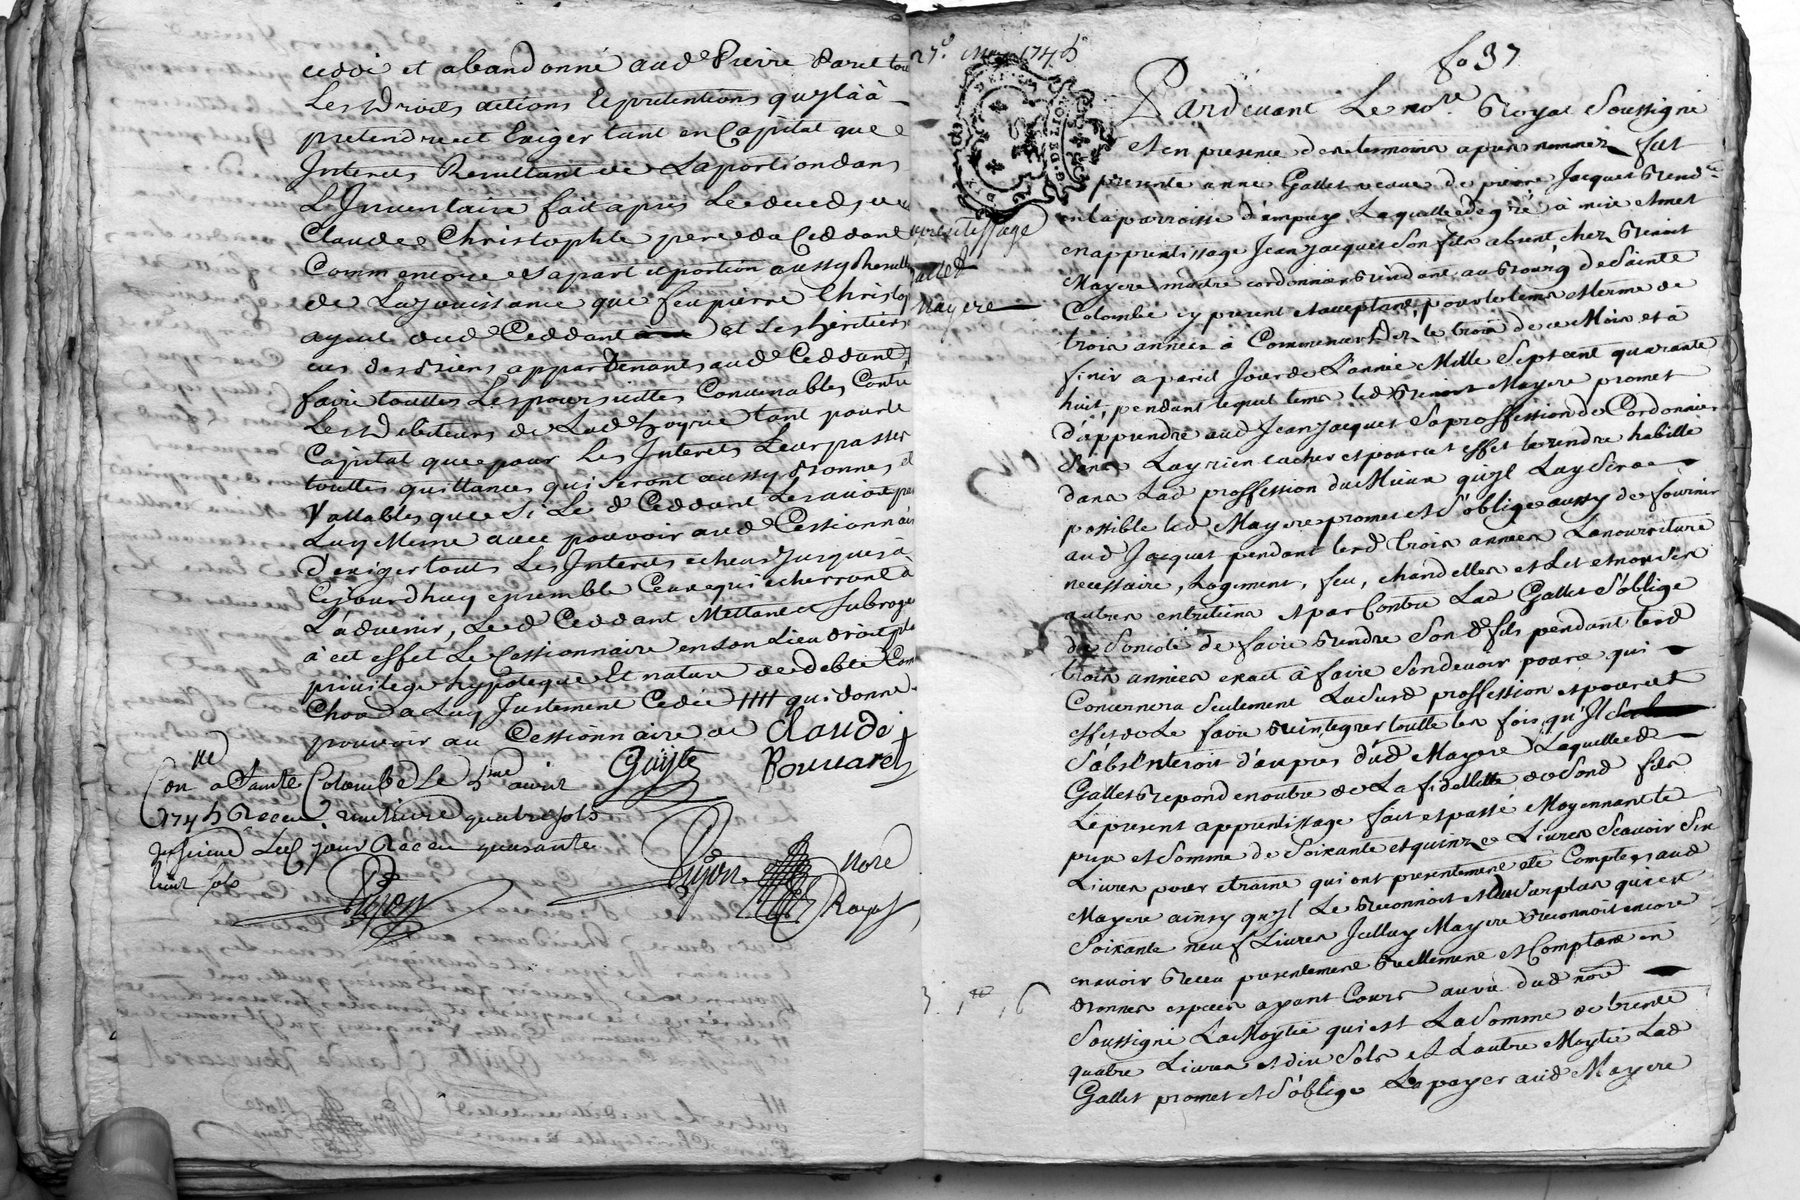 ceddé et abandonné aud. Pierre
Les Droits actions et pretentions quil a à
pretendre et Exiger tant en Capital que
Interets Resultant de La portion dans
L'Inventaire fait après Le deceds
Claude Christophle pere du Ceddant
Comm encore sa part et portion aussy
de La Jouissance que feu pierre Christop
ayeul dud. Ceddant et Les heritiers
des siens appartenants aud. Ceddant
faire touttes Les poursuittes Convenables Contre
Les Debiteurs de Lad. tant pour le
Capital que pour Les Interets Leur passer
touttes quittances qui seront aussy Bonnes et
Vallables que Si Le d. Ceddant Les avoit
Luy Meme avec pouvoir aud. Cessionnaire
d'exiger tout Les Interets echeus Jusques à
Cejourdhuy ensemble Ceux qui echerront a
L'advenir, Led. Ceddant Mettant et subroge
à cet effet Le Cessionnaire en son Lieu droit
privilege hypoteque Et nature de debte
Justement Cedée qui donne
pouvoir au Cessionnaire de Claude
Guyte Bouvaret
Con.lle a Sainte Colombe Le 5me avril
1745 Receu quatre sols
Led. jour Receu quarante
huit sols
Pijon
Pijon nore
Royal
27e. May 1745
fo 37
Pardevant Le nore. Royal Soussigné
Et en presence des temoins apres nommez fut
presente anne Gallet veuve de pierre Jacquet Resid.te
en la parroisse d'ampuys Laquelle de gré à mis et met
en apprentissage Jean Jacquet Son fils absent, chez Benoit
Mayere maitre cordonnier Residant au Bourg de Sainte
Colombe cy present et acceptant, pour le tems et terme de
trois années à Commencer dez le trois de ce Mois et à
finir a pareil Jour de L'année Mille Sept cent quarante
huit, pendant lequel tems led. Benoit Mayere promet
d'apprendre aud. Jean Jacquet Sa proffession de Cordonnier
Sans Luy rien cacher et pour cet effet le rendre habille
dans Lad. proffession du Mieux qu'yl Luy Sera
possible led. Mayere promet et s'oblige aussy de fournir
aud. Jacquet pendant lesd. trois années La nourriture
necessaire, Logement, feu, chandelles et Lit et non des
autres entretiens et par Contre Lad. Gallet s'oblige
de Son coté de faire Rendre Son d. fils pendant lesd.
trois années exact à faire Son devoir pour ce qui
Concernera Seulement Lasusd. proffession et pour cet
effet de Le faire Reintegrer toutte les fois qu'Il
S'absenteroit d'aupres dud. Mayere Laquelle d.
Gallet Repond en outre de La fidellitté de Sond. fils
Le present apprentissage fait et passé Moyennant le
prix et Somme de Soixante et quinze Livres Scavoir Six
Livres pour etraine qui ont presentement eté Comptées aud.
Mayere ainsy qu'yl Le Reconnoit et du Surplus qui est
Soixante neuf Livres Jelluy Mayere Reconnoit encore
en avoir Receu presentement Reellement et Comptant en
Bonnes especes ayant Cours au vu dud. nore
Soussigné La Moytié qui est La Somme de trente
quatre Livres et dix Sols et L'autre Moytié Lad.
Gallet promet et s'oblige La payer aud. Mayere
apprentissage
Gallet
Mayere